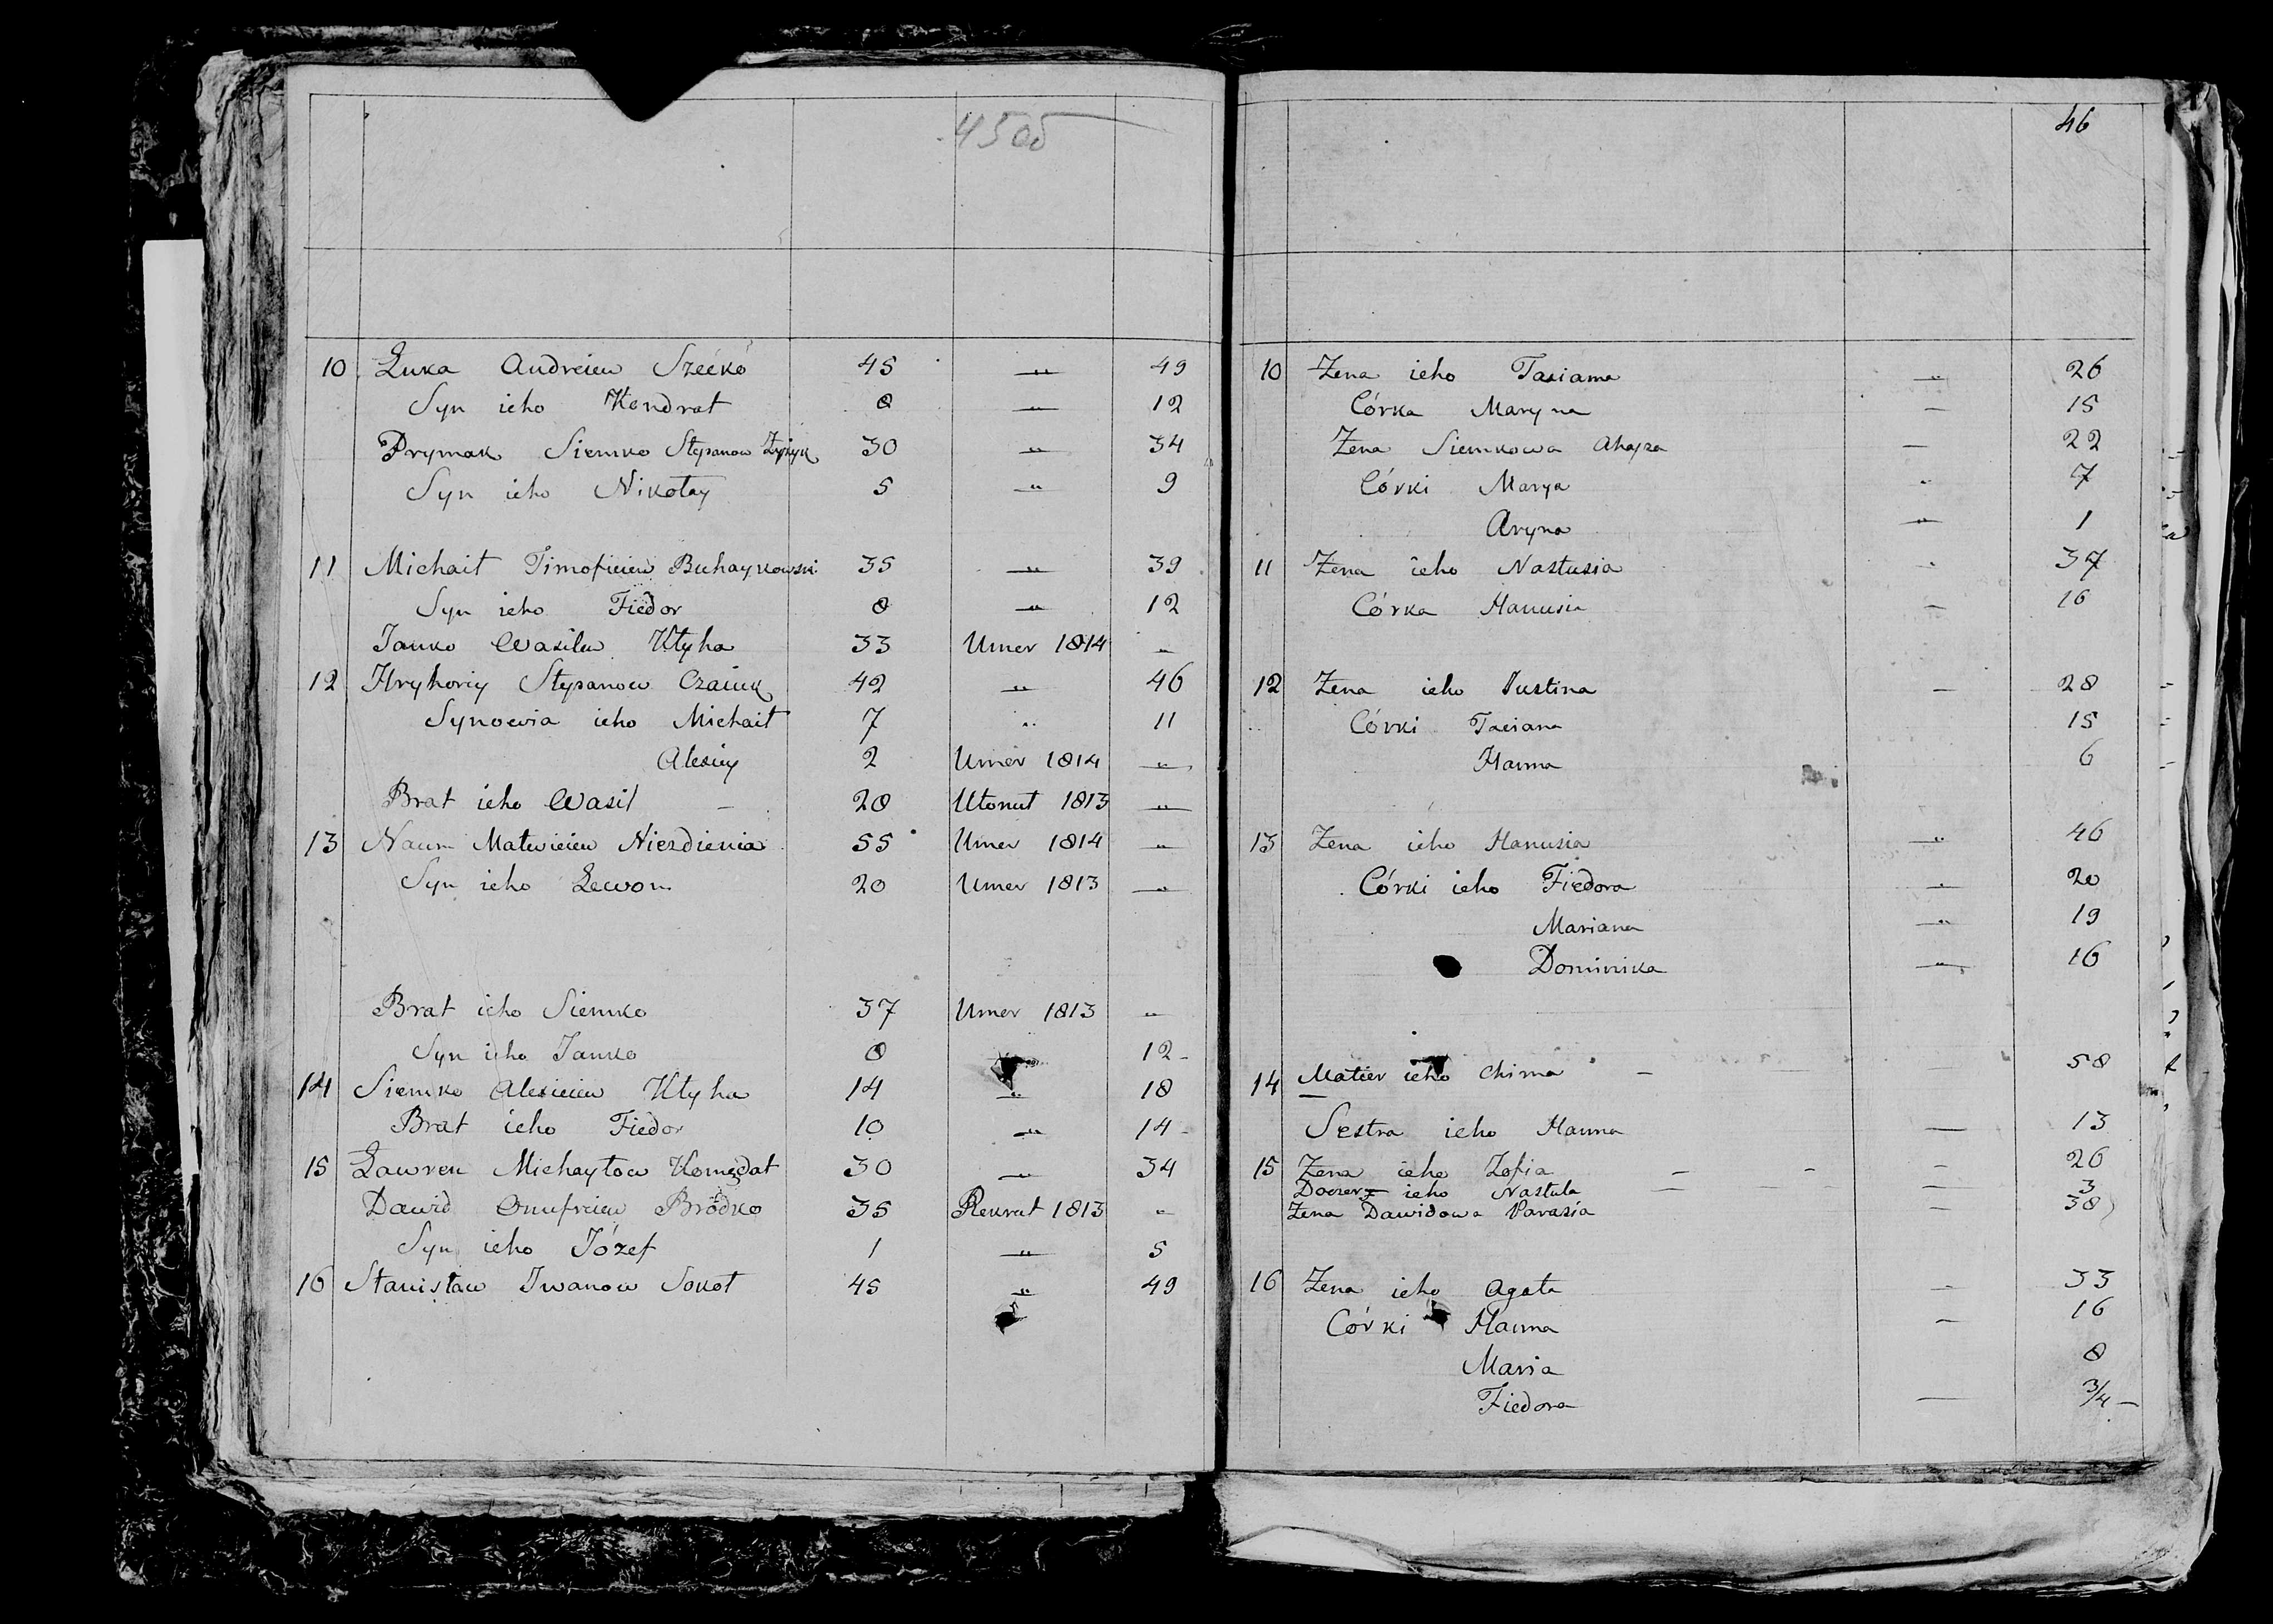 45об
10 Łuka Andreiew Szećko 45 „ 49
Syn ieho Kondrat 8 „ 12
Prymak Siemko Stepanow Zyzyk 30 „ 34
Syn ieho Nikołay 5 „ 9
11 Michaił Timofieiew Buhaykowski 35 „ 39
Syn ieho Fiedor 8 „ 12
Janko Wasilew Kłyha 33 Umer 1814 „
12 Hryhoriy Stepanow Czaiuk 42 „ 46
Synowia ieho Michaił 7 „ 11
Alexiey 2 Umer 1814 „
Brat ieho Wasil – 20 Utonuł 1813 „
13 Naum Matwieiew Niezdienia 55 Umer 1814 „
Syn ieho Lewon 20 Umer 1813 „
Brat ieho Siemko 37 Umer 1813 „
Syn ieho Janko 8 „ 12
14 Siemko Alexieiew Kłyha 14 „ 18
Brat ieho Fiedor 10 „ 14
15 Ławren Michayłow Komędat 30 „ 34
Dawid Onufreiew Brodko 35 Rekrut 1813 „
Syn ieho Józef 1 „ 5
16 Stanisław Iwanow Sokoł 45 „ 49
46
10 Zena ieho Taciana „ 26
Córka Maryna – 15
Zena Siemkowa Ahapa – 22
Córki Marya „ 7
Aryna „ 1
11 Zena ieho Nastusia „ 37
Córka Hanusia – 16
12 Zena ieho Justina – 28
Córki Taciana 15
Hanna 6
13 Zena ieho Hanusia „ 46
Córki ieho Fiedora „ 20
Mariana „ 19
Dominika „ 16
14 Matier ieho Chima – 58
Sestra ieho Hanna – 13
15 Zena ieho Zofia – – – 26
Doczerz ieho Nastula – – – 3
Zena Dawidowa Parasia – 38
16 Zena ieho Agata – 33
Córki Hanna – 16
Maria 8
Fiedora – 3/4 –